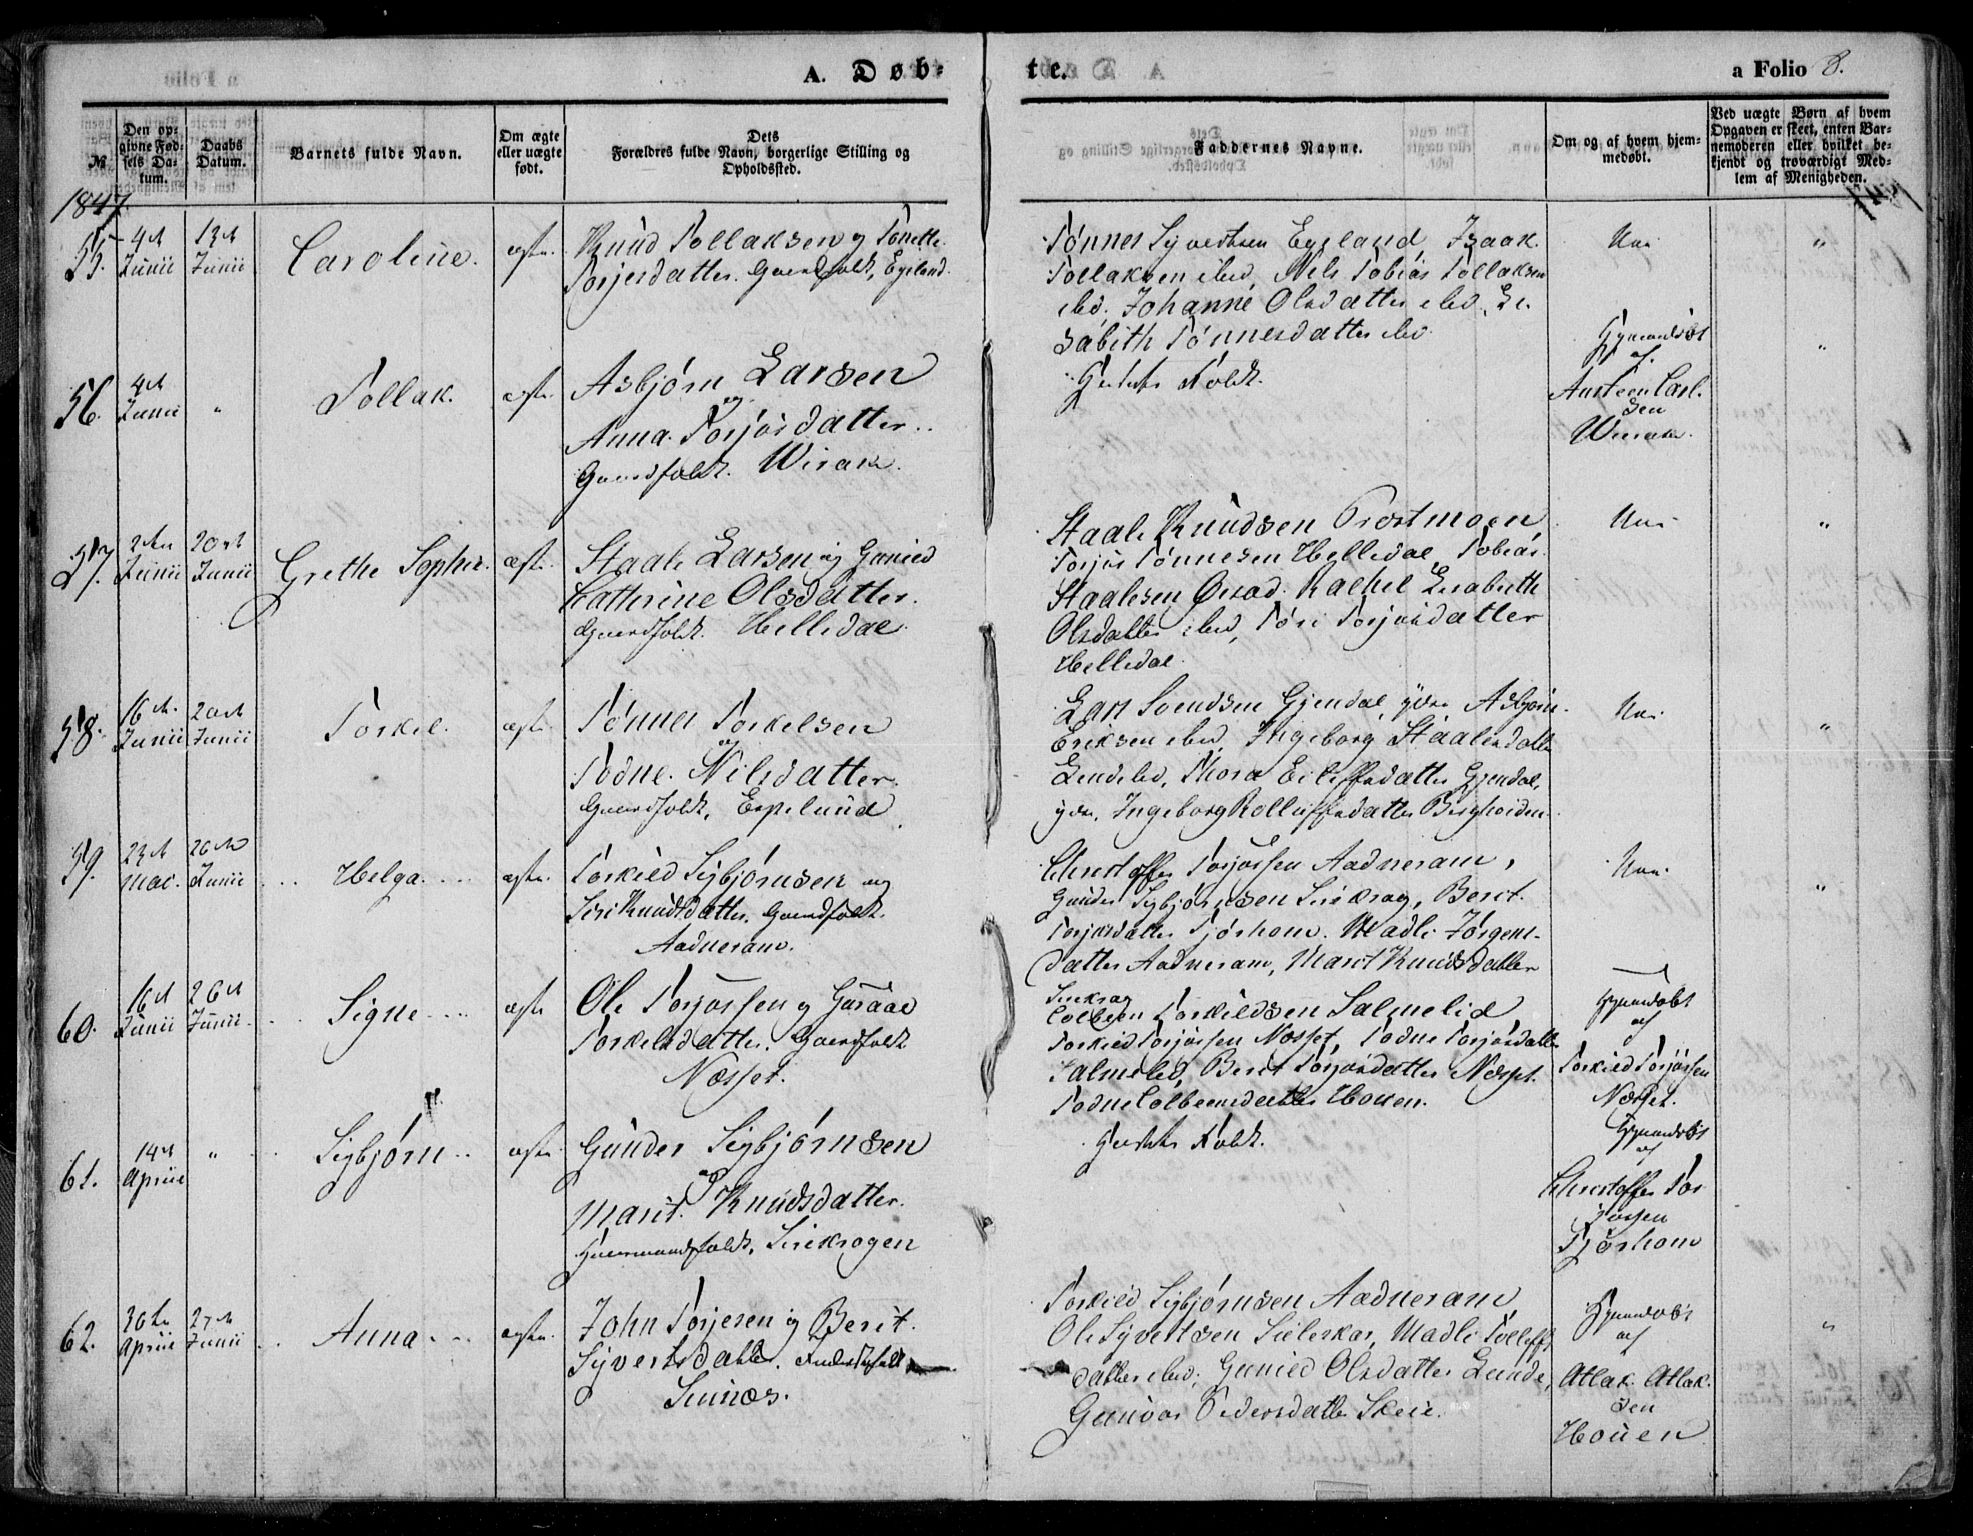 A. Døb-
te.
a Folio 8.
№
Den op-
givne Fød-
sels Da-
tum.
Daabs
Datum.
Barnets fulde Navn.
Om ægte
eller uægte
født.
Dets
Forældres fulde Navn, borgerlige Stilling og
Opholdssted.
Faddernes Navne.
Om og af hvem hjem-
medøbt.
Ved uægte Børn af hvem
Opgaven er skeet, enten Bar-
nemoderen eller hvilket be-
kjendt og troværdigt Med-
lem af Menigheden.
1847.
1847
55. 4de Junii
13de Junii
Caroline.
ægte.
Knud Tollaksen og Tonette
Torjersdatter. Gaardfolk, Egeland.
Tønnes Syvertsen Egeland, Isaak
Tollaksen ibid, Nils Tobias Tollaksen
ibd. Johanne Olsdatter ibd, Li-
sabith Tønnesdatter ibd.
Nei
"
56. 4de Junii
"
Tollak.
ægte.
Asbjørn Larsen
og
Anna Torjosdatter.
Gaardfolk. Wirak.
Hjemdøbt
af
Ansteen Carl-
sen
Wirak.
"
57. 2den Junii
20de Junii
Grethe Sophie.
ægte.
Staale Larsen og Gunild
Catherine Olsdatter.
Gaardfolk. Helledal.
Staale Knudsen Præstmoen
Torjus Tønnesen Helledal, Tobias
Staalesen Ousad. Rachel Lisabeth
Olsdatter ibd, Tøri Torjusdatter
Helledal.
Nei
"
58. 16de Junii
20de Junii
Torkel.
ægte.
Tønnes Torkelsen
og
Todne Nilsdatter.
Gaardfolk, Espelund
Lars Svendsen Gjendal ydre Asbjørn
Eriksen ibd, Ingeborg Staalesdatter
Lindeland, Thora Eileffsdatter Gjendal,
ydre, Ingeborg Rolleiffsdatter Bergheiden
Nei
"
59. 23de Mai.
26de Junii
Helga.
ægte.
Torkild Sigbjørnsen og
Siri Knudsdatter. Gaardfolk.
Aadneram.
Christoffer Torjussen Aadneram,
Gunder Sigbjørnsen Sirekrog, Berit
Torjusdatter Tjørhom. Madli Jørgens-
datter Aadneram, Marit Knudsdatter
Sirekrog
Nei
"
60. 16de Junii
26de Junii
Signe
ægte
Ole Torjussen og Guroe
Torkelsdatter. Gaardfolk
Næsset.
Colben Torkildsen Salmelid
Torkild Torjussen Næsset, Todne Torjusdatter
Salmelid, Berit Torjusdatter Næsset.
Todne Colbeensdatter Houen.
Hjemdøbt
af
Torkild Torjussen
Næsset.
61. 14de Aprii
"
Sigbjørn
ægte.
Gunder Sigbjørnsen
og
Marit Knudsdatter.
Huusmandsfolk, Sirekrogen
Hjemdøbt
af
Christoffer Tor-
jussen
Tjørhom
62. 30te Aprii
27de Junii
Anna
ægte.
John Torjesen og Berit
Syvertsdatter. Inderstfolk
Sinnes.
Torkild Sigbjørnsen Aadneram,
Ole Syvertsen Sieleskar, Madli Tolleffs-
datter ibid; Gunild Olsdatter Lunde,
Gunvor Pedersdatter Skeie.
Hjemdøbt
af
Atlak Atlak-
sen
Houen
"